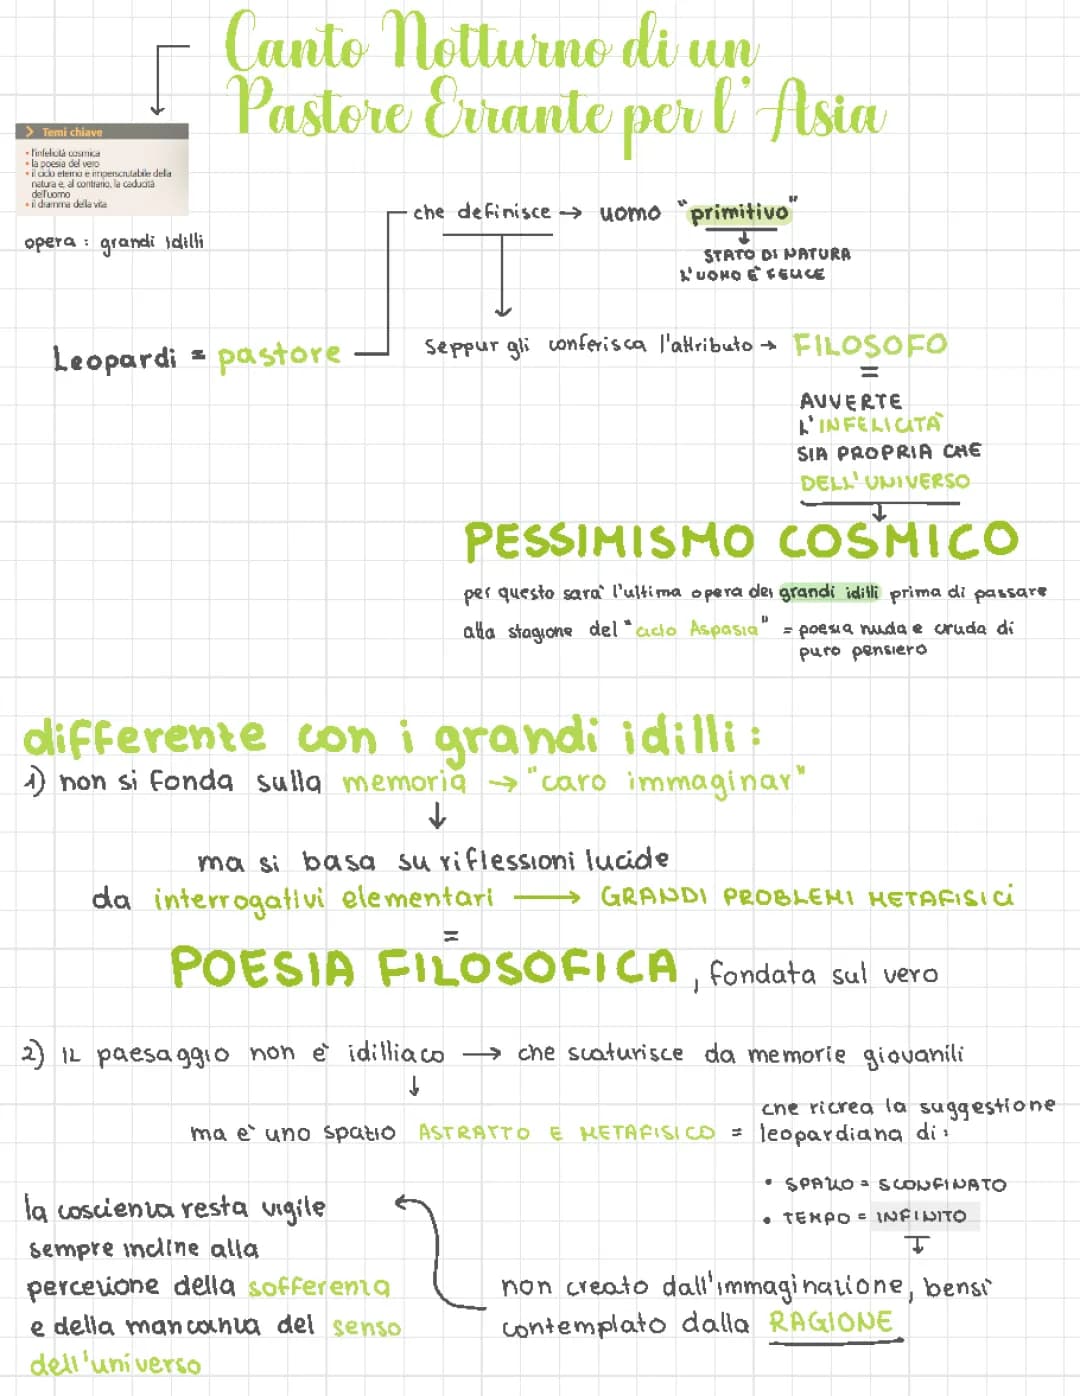 Canto Notturno di un
Pastore Errante per l'Asia
> Temi chiave
• l'infelicità cosmica
• la poesia del vero
• il ciclo eterno e imperscrutabile della
natura e, al contrario, la caducità
dell'uomo
• il dramma della vita
opera : grandi idilli
che definisce → uomo "primitivo"
↓
STATO DI NATURA
L'UOMO E' FELICE
Leopardi = pastore
Seppur gli conferisca l'attributo → FILOSOFO
=
AVVERTE
L'INFELICITÀ
SIA PROPRIA CHE
DELL'UNIVERSO
↓
PESSIMISMO COSMICO
per questo sara' l'ultima opera dei grandi idilli prima di passare
alla stagione del "ciclo Aspasia" = poesia nuda e cruda di
puro pensiero
differente con i grandi idilli:
1) non si fonda sulla memoria → "caro immaginar"
↓
ma si basa su riflessioni lucide
da interrogativi elementari → GRANDI PROBLEMI METAFISICI
=
POESIA FILOSOFICA, fondata sul vero
2) IL paesaggio non e' idilliaco → che scaturisce da memorie giovanili
↓
ma e' uno spatio ASTRATTO E METAFISICO = che ricrea la suggestione
leopardiana di:
• SPAZIO = SCONFINATO
• TEMPO = INFINITO
↓
non creato dall'immaginazione, bensi'
contemplato dalla RAGIONE
la coscienza resta vigile
sempre incline alla
percezione della sofferenza
e della mancanza del senso
dell'universo